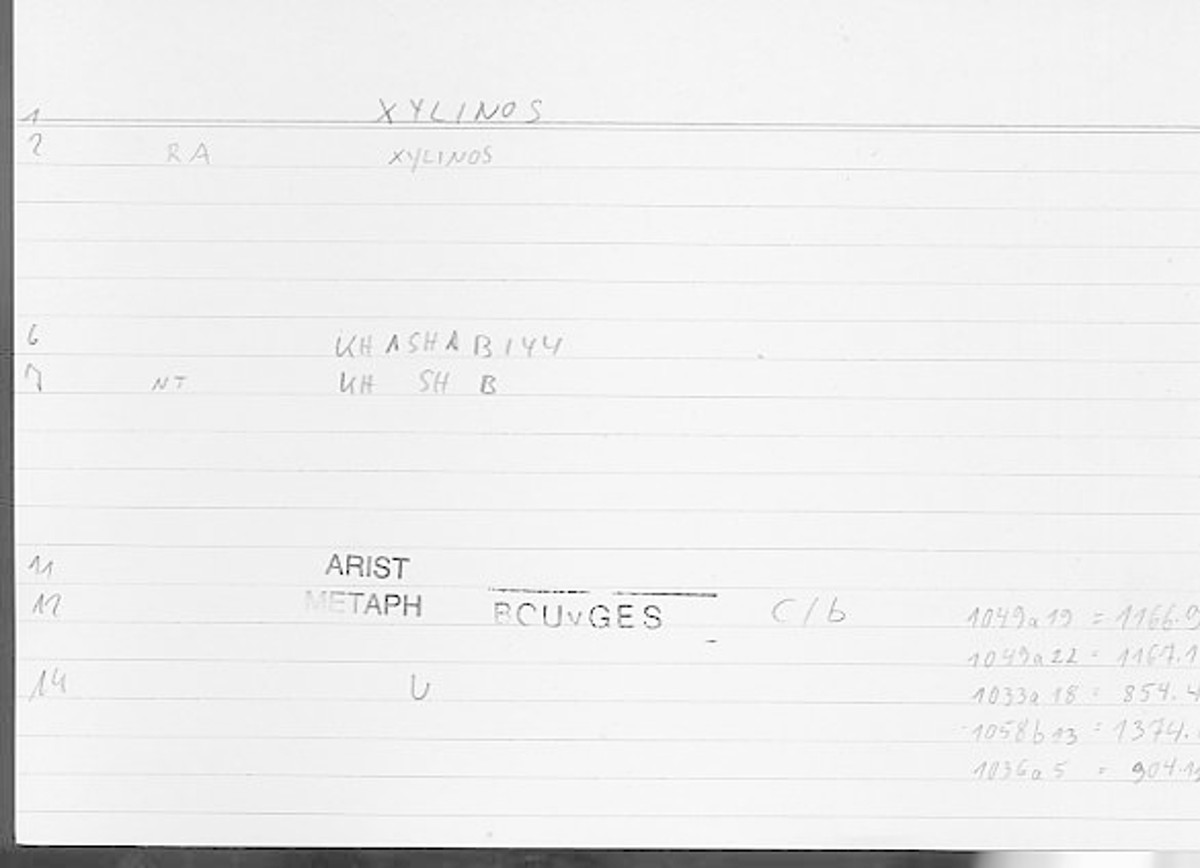 1 XYLINOS
2 RA XYLINOS
6 KHASHAB144
7 NT KH SH B
11 ARIST
12 METAPH BCUvGES C/b 1049a19 = 1166.9
1049a22 = 1167.1
14 U 1033a18 = 854.4
1058b13 = 1374.
1036a5 = 904.1